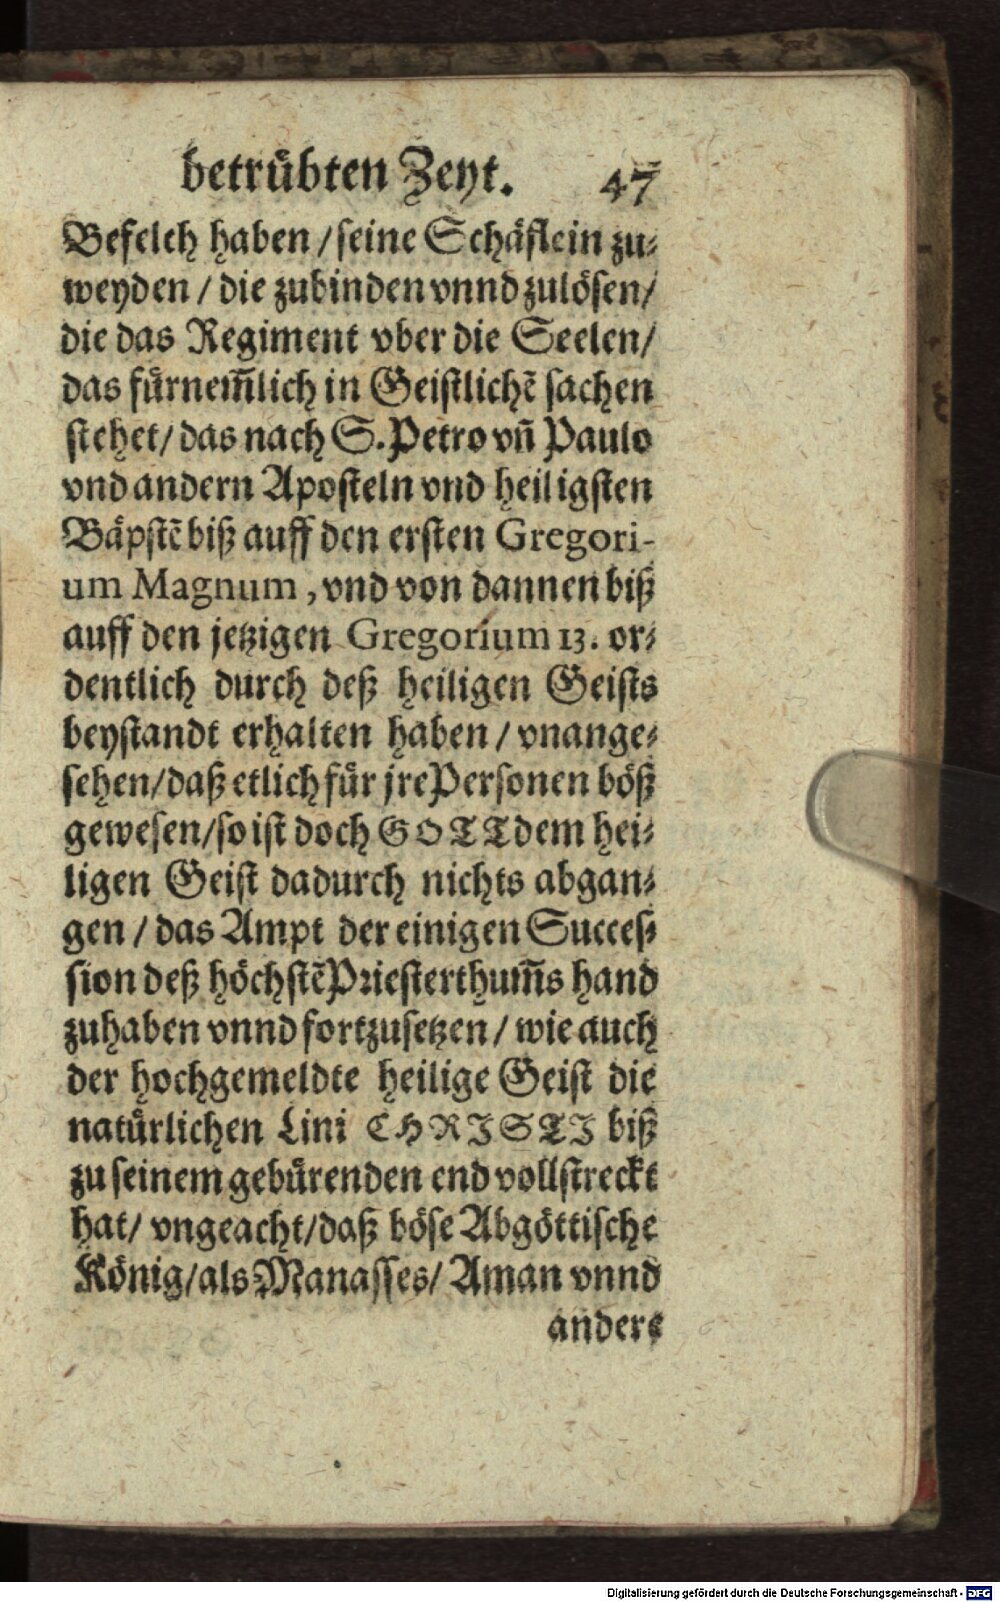 betruͤbten Zeyt. 47
Befelch haben / seine Schäflein zu⸗
weyden / die zubinden vnnd zulösen/
die das Regiment vber die Seelen/
das fuͤrnem̄lich in Geistlichē sachen
stehet/ das nach S. Petro vn̄ Paulo
vnd andern Aposteln vnd heiligsten
Bäpstē biß auff den ersten Gregori-
um Magnum, vnd von dannen biß
auff den jetzigen Gregorium 13. or⸗
dentlich durch deß heiligen Geists
beystandt erhalten haben / vnange⸗
sehen/daß etlich fuͤr jre Personen böß
gewesen/so ist doch GOTT dem hei⸗
ligen Geist dadurch nichts abgan⸗
gen / das Ampt der einigen Succes⸗
sion deß höchstē Priesterthum̄s hand
zuhaben vnnd fortzusetzen / wie auch
der hochgemeldte heilige Geist die
natuͤrlichen Lini CHRISTI biß
zu seinem gebuͤrenden end vollstreckt
hat/ vngeacht/daß böse Abgöttische
König/als Manasses/ Aman vnnd
andere
Digitalisierung gefördert durch die Deutsche Forschungsgemeinschaft - DFG